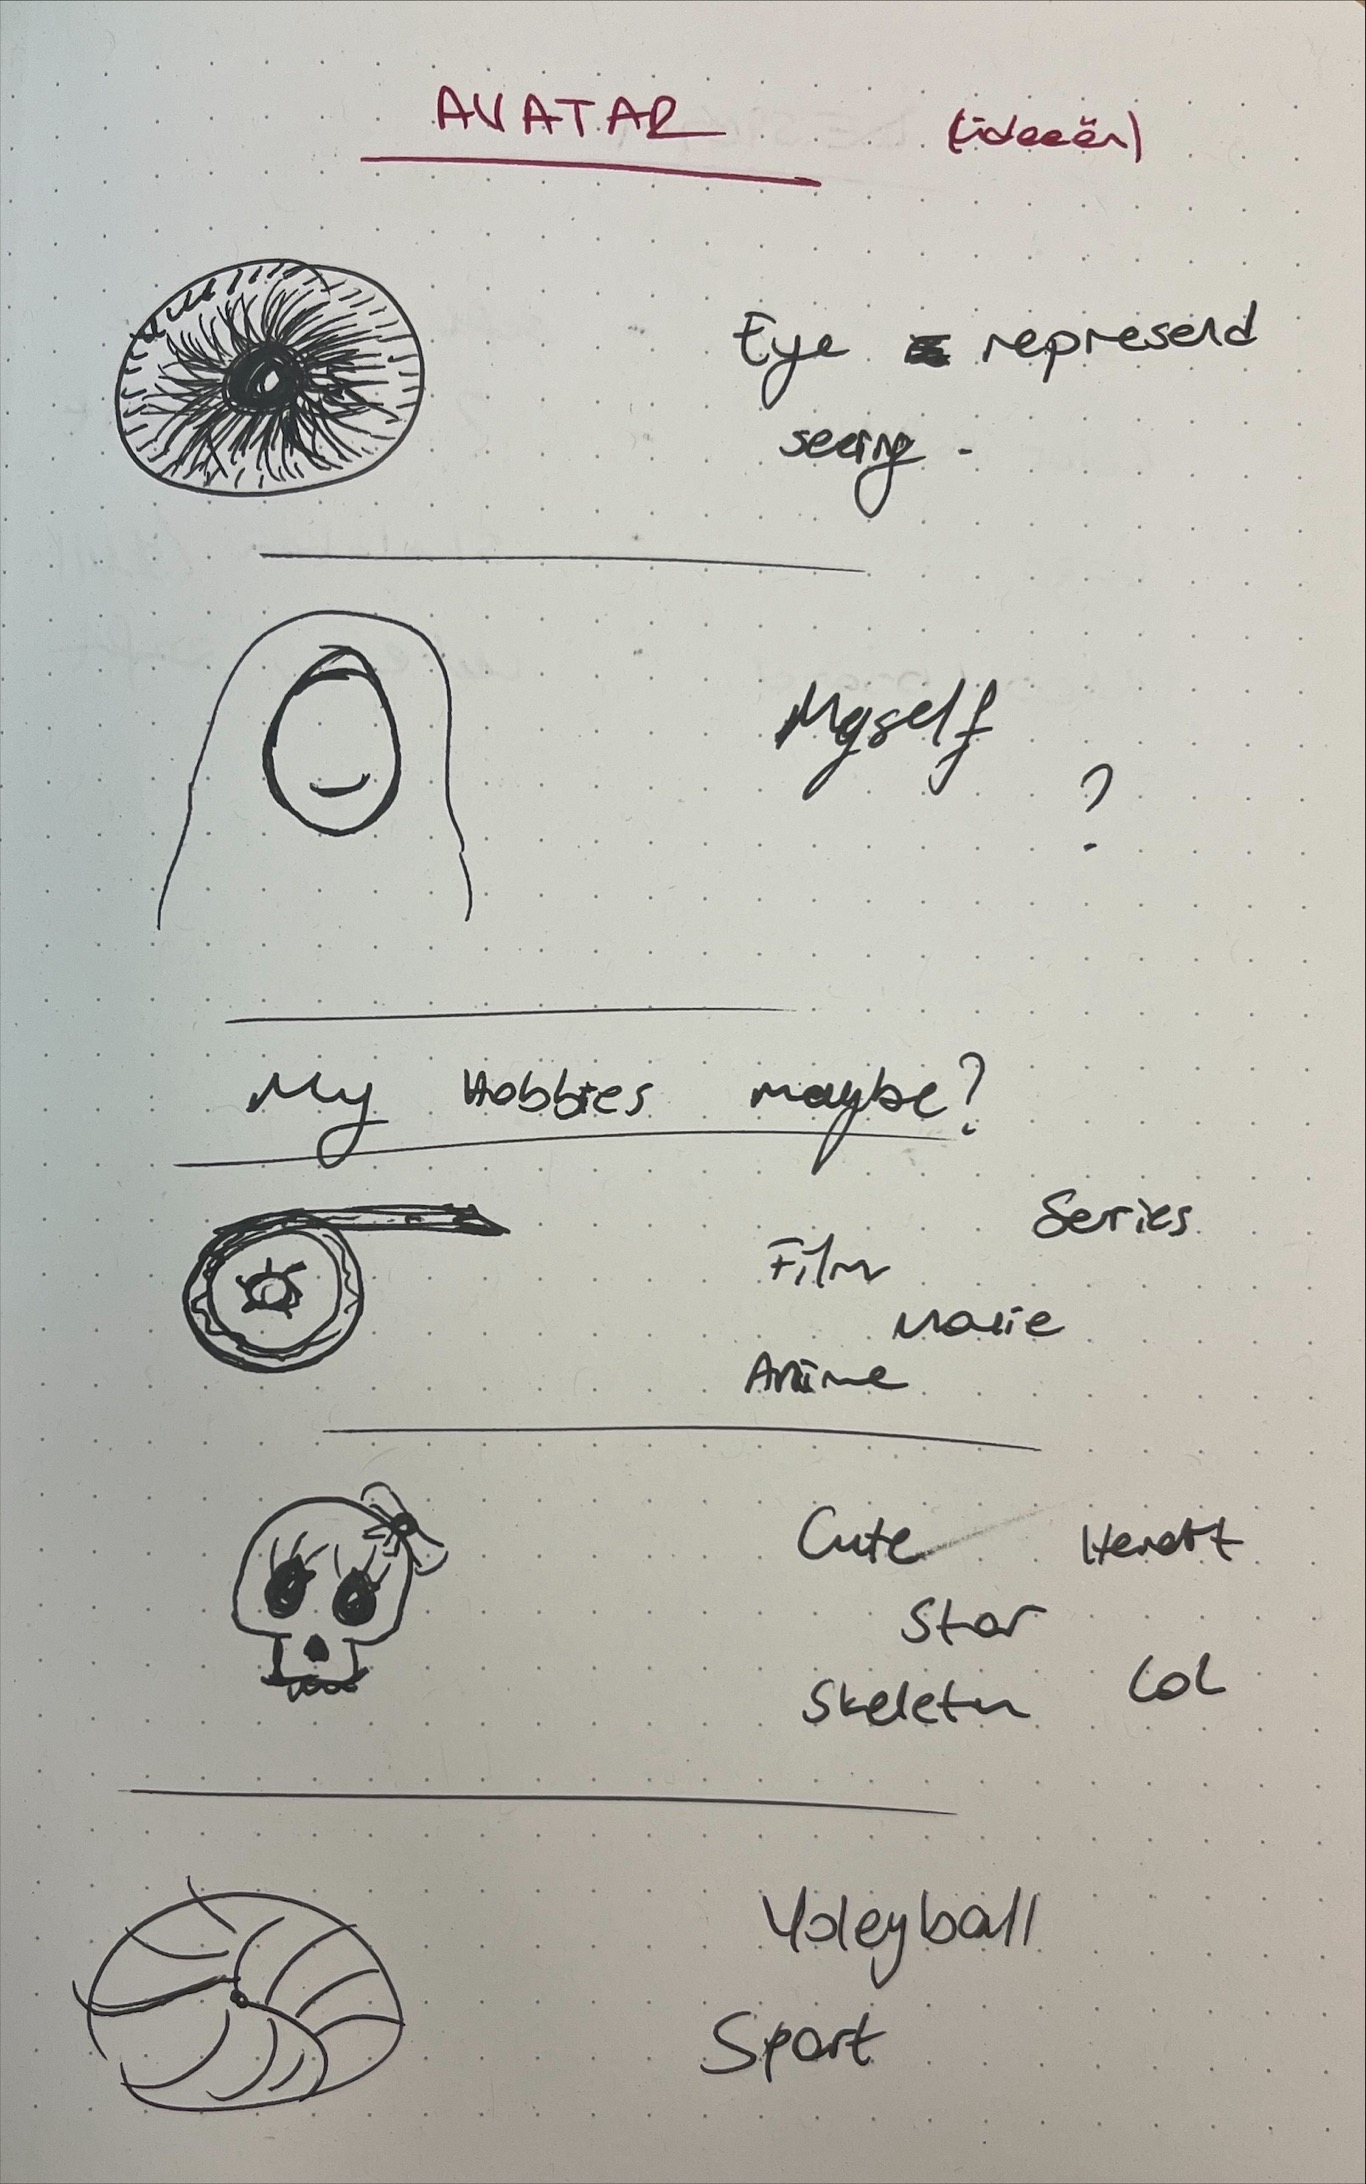 AVATAR (ideeën)
Eye represend
seeing.
Myself
?
My Hobbies maybe?
Series
Film
Movie
Anime
Cute
Star
Skeleton LOL
Voleyball
Sport